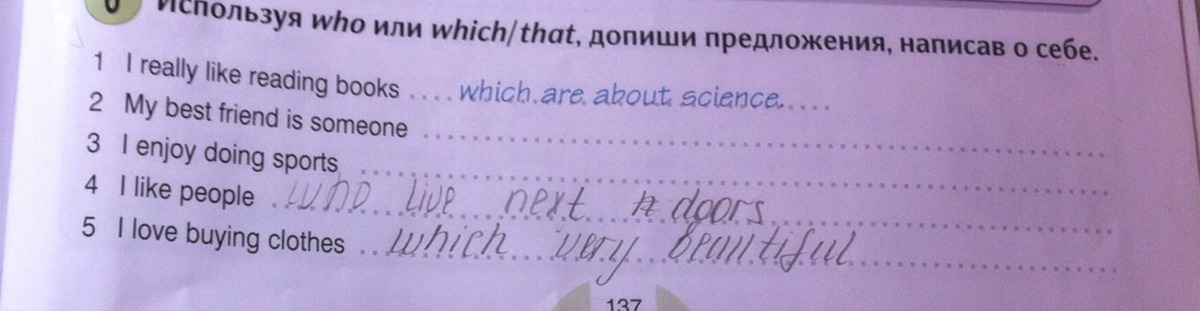 6 Используя who или which/that, допиши предложения, написав о себе.
1 I really like reading books .... which are about science. ....
2 My best friend is someone
3 I enjoy doing sports
4 I like people who live next doors
5 I love buying clothes which very beautiful
137